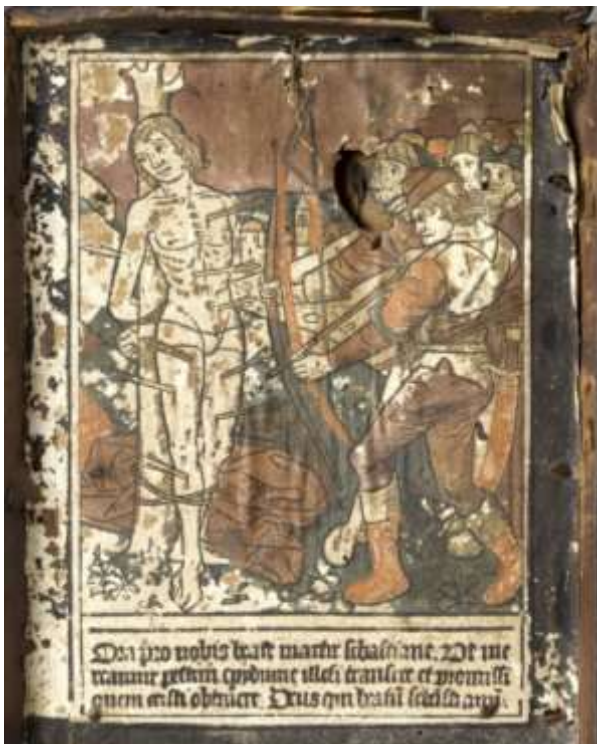 Ora pro nobis beate martir sebastiane. Ut me
reamur pestem epydimie illesi transire et promissi
quem cristi obtinere. Deus qui beatū